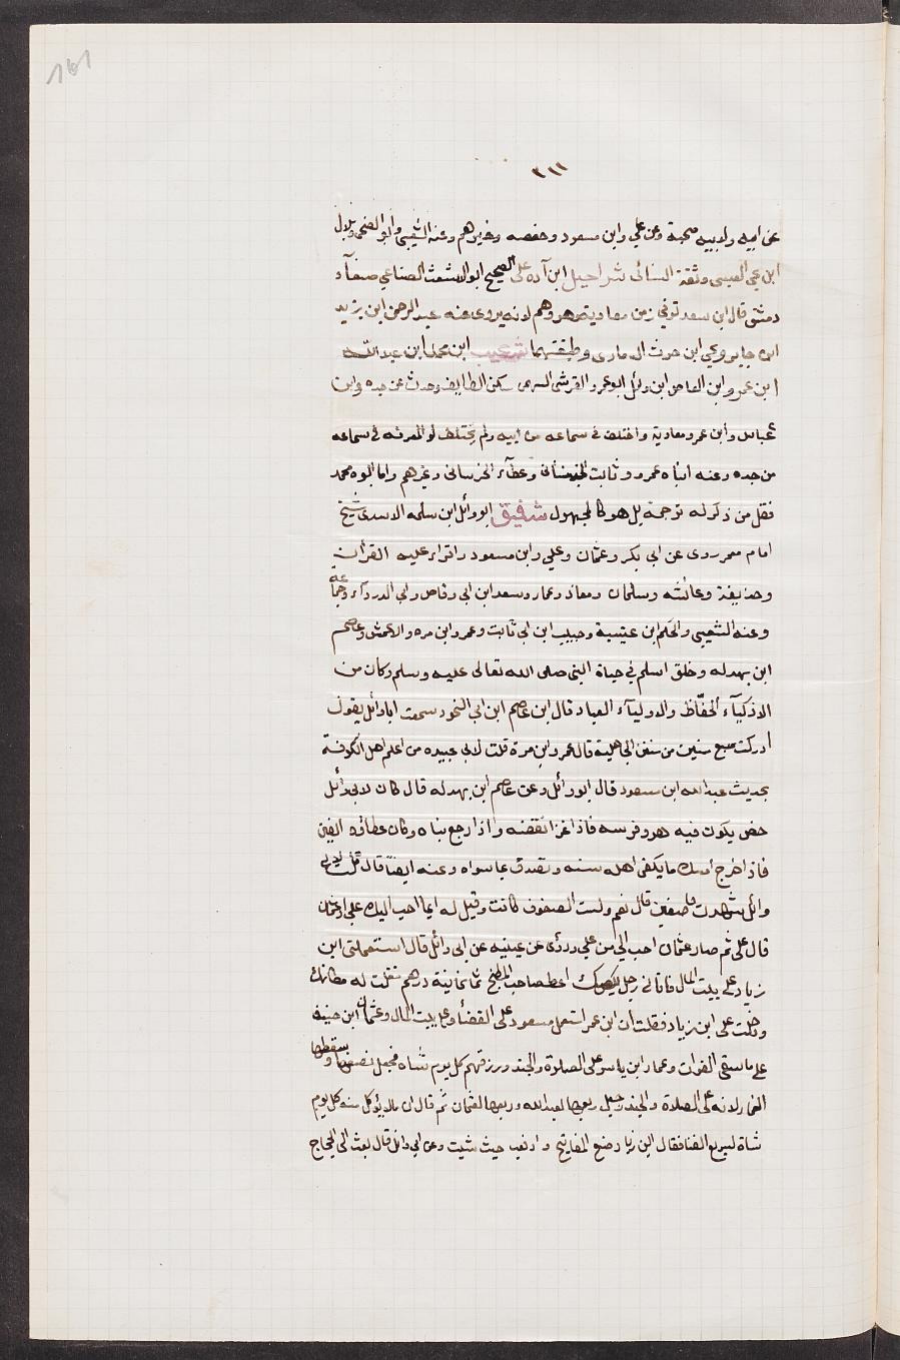 161
٢١١
عن ابيه ولابيه صحبة وعن علي وابن مسعود وحفصه وغيرهم وعنه الشعبي وابو الضحى وبلال
ابن يحي العبسى وثقة النسائى شراحيل ابن آده على الصحيح ابو الاشعث الصناعي صنعآء
دمشق قال ابن سعد توفي زمن معاوية وهم لانه يروى عنه عبد الرحمن ابن يزيد
ابن جابر ويحي ابن حرث الذمارى وطبقتهما شعيب ابن محمد ابن عبد الله
ابن عمرو ابن العاص ابن وائل ابو عمرو القرشى السهمى سكن الطايف وحدث عن جده وابن
عباس وابن عمر ومعاوية واختلف في سماعه من ابيه ولم يختلف لو المعرفه في سماعه
من جده وعنه ابناه عمرو وثابت البنانى وعطآء الخرسانى وغيرهم واما ابوه محمد
فقل من ذكر له ترجمة بل هو كالمجهول شقيق ابو وائل ابن سلمه الاسدى شيخ
امام معمر روى عن ابى بكر وعثمان وعلي وابن مسعود واقراء عليه القرأن
وحذيفة وعائشه وسلمان ومعاذ وعمار وسعد ابن ابى وقاص وابى الدردآء وجماعة
وعنه الشعبي والحكم ابن عتيبة وحبيب ابن ابى ثابت وعمرو ابن مره والاعمش وعاصم
ابن بهدله وخلق اسلم في حياة النبى صلى الله تعالى عليه وسلم وكان من
الاذكيآء الحفاظ والاوليآء العباد قال ابن عاصم ابن ابى النجود سمعت ابا وائل يقول
ادركت سبع سنين من سنى الجاهلية قال عمرو ابن مرة قلت لابى عبيده من اعلم اهل الكوفة
بحديث عبد الله ابن مسعود قال ابو وائل وعن عاصم ابن بهدله قال كان لابى وائل
خص يكون فيه هو وفرسه فاذا غزا نقضه واذا رجع بناه وكان عطاؤه الفين
فاذا اخرج امسك ما يكفى اهله سنه وتصدق بما سواه وعنه ايضا قال قلت لابى
وائل شهدت صفين قال نعم ولست الصفوف كانت وقيل له ايما احب اليك علي او عثمان
قال علي ثم صار عثمان احب الي من علي وروى عن عينيه عن ابى وائل قال استعملنى ابن
زياد على بيت المال فاتانى رجل بصك اعط صاحب المطبخ ثمانمائة درهم فقلت له مكانك
ودخلت على ابن زياد فقلت ان ابن عمر استعمل مسعود على القضا وعلى بيت المال وعثمان ابن حنيف
على ما سقى الفرات وعمار ابن ياسر على الصلاة والجند ورزقهم كل يوم شاه فجعل نصفها وسقطها
لعمار لانه على الصلاة والجند وجعل ربعها لعبد الله وربعها لعثمان ثم قال ان مالا يؤكل منه كل يوم
شاة لسريع الفنا فقال ابن زياد ضع المفاتيح واذهب حيث شيت وعن ابى وائل قال بعث الى الحجاج